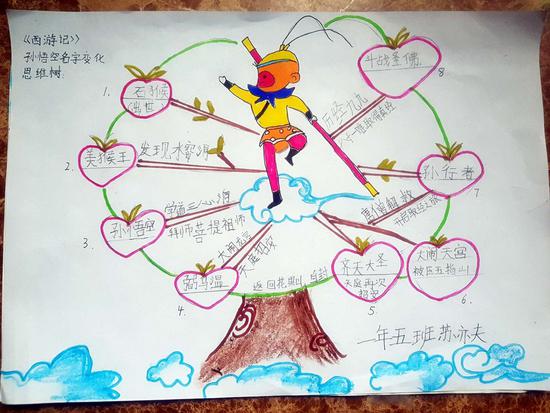 《西游记》
孙悟空名字变化
思维树:
1.
石猴
出世
2.
美猴王
发现水帘洞
3.
孙悟空
学道三心洞
拜师菩提祖师
4.
弼马温
大闹龙宫
天庭招安
返回花果山,自封
5.
齐天大圣
天庭再次
招安
6.
大闹天宫
被压五指山
7
孙行者
唐僧解救
开启取经之旅
8
斗战圣佛
历经九九
八十一难取得真经
二年五班苏亦夫